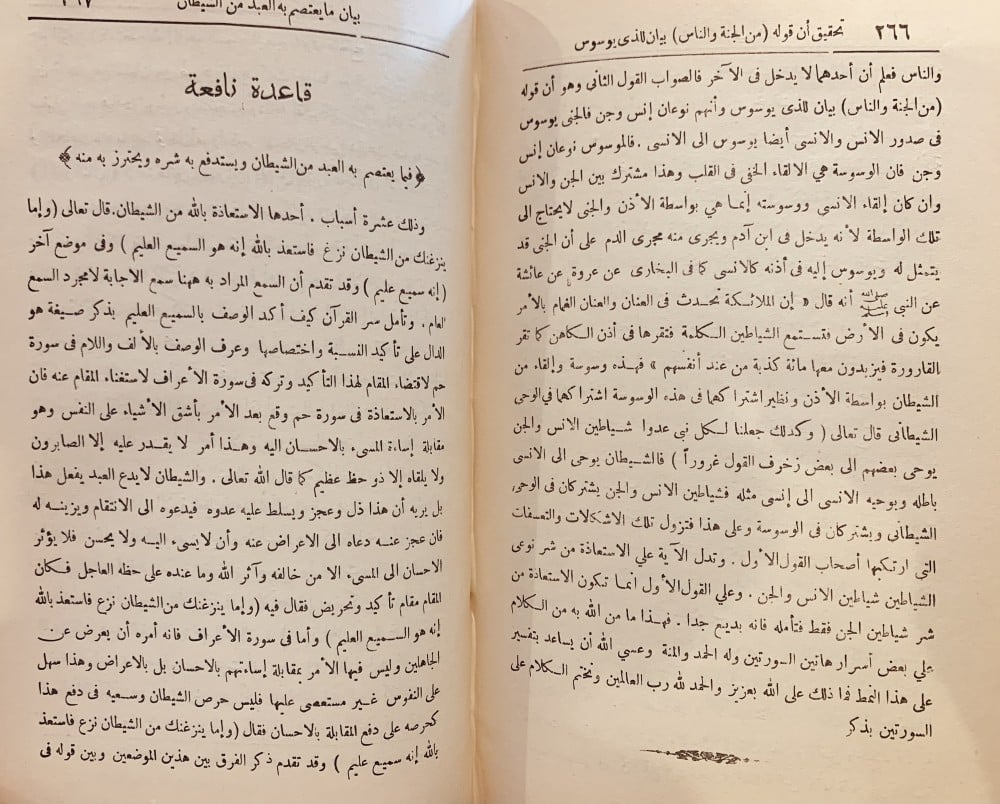 ٢٦٦ تحقيق أن قوله (من الجنة والناس) بيان للذى يوسوس
والناس فعلم أن أحدهما لا يدخل فى الآخر فالصواب القول الثانى وهو أن قوله
(من الجنة والناس) بيان للذى يوسوس وأنهم نوعان إنس وجن فالجنى يوسوس
فى صدور الانس والانسى أيضا يوسوس الى الانسى . فالموسوس نوعان إنس
وجن فان الوسوسة هي الالقاء الخفى فى القلب وهذا مشترك بين الجن والانس
وان كان إلقاء الانسى ووسوسته إنما هي بواسطة الأذن والجنى لايحتاج الى
تلك الواسطة لأنه يدخل فى ابن آدم ويجرى منه مجرى الدم على أن الجنى قد
يتمثل له ويوسوس إليه فى أذنه كالانسى كما فى البخارى عن عروة عن عائشة
عن النبي ﷺ أنه قال « إن الملائكة تحدث فى العنان والعنان الغمام بالأمر
يكون فى الأرض فتستمع الشياطين الكلمة فتقرها فى أذن الكاهن كما تقر
القارورة فيزيدون معها مائة كذبة من عند أنفسهم » فهذه وسوسة وإلقاء من
الشيطان بواسطة الأذن ونظير اشتراكهما فى هذه الوسوسة اشتراكهما فى الوحي
الشيطانى قال تعالى ( وكذلك جعلنا لكل نبي عدوا شياطين الانس والجن
يوحى بعضهم الى بعض زخرف القول غروراً ) فالشيطان يوحى الى الانسى
باطله ويوحيه الانسى الى إنسى مثله فشياطين الانس والجن يشتركان فى الوحى
الشيطانى ويشتركان فى الوسوسة وعلى هذا فتزول تلك الاشكالات والتعسفات
التى ارتكبها أصحاب القول الأول . وتدل الآية علي الاستعاذة من شر نوعى
الشياطين شياطين الانس والجن . وعلي القول الأول انما تكون الاستعاذة من
شر شياطين الجن فقط فتأمله فانه بديع جدا . فهذا ما من الله به من الكلام
علي بعض أسرار هاتين السورتين وله الحمد والمنة وعسي الله أن يساعد بتفسير
على هذا النمط فما ذلك على الله بعزيز والحمد لله رب العالمين ونختم الكلام على
السورتين بذكر
بيان ما يعتصم به العبد من الشيطان
قاعدة نافعة
﴿ فيما يعتصم به العبد من الشيطان ويستدفع به شره ويحترز به منه ﴾
وذلك عشرة أسباب . أحدها الاستعاذة بالله من الشيطان، قال تعالى (وإما
ينزغنك من الشيطان نزغ فاستعذ بالله إنه هو السميع العليم ) وفى موضع آخر
(إنه سميع عليم ) وقد تقدم أن السمع المراد به ههنا سمع الاجابة لامجرد السمع
العام . وتأمل سر القرآن كيف أكد الوصف بالسميع العليم بذكر صيغة هو
الدال على تأكيد النسبة واختصاصها وعرف الوصف بالألف واللام فى سورة
حم لاقتضاء المقام لهذا التأكيد وتركه فى سورة الأعراف لاستغناء المقام عنه فان
الأمر بالاستعاذة فى سورة حم وقع بعد الأمر بأشق الأشياء على النفس وهو
مقابلة إساءة المسىء بالاحسان اليه وهذا أمر لا يقدر عليه إلا الصابرون
ولا يلقاه إلا ذو حظ عظيم كما قال الله تعالى . والشيطان لايدع العبد يفعل هذا
بل يريه أن هذا ذل وعجز ويسلط عليه عدوه فيدعوه الى الانتقام ويزينه له
فان عجز عنه دعاه الى الاعراض عنه وأن لايسىء اليه ولا يحسن فلا يؤثر
الاحسان الى المسىء الا من خالفه وآثر الله وما عنده على حظه العاجل فكان
المقام مقام تأكيد وتحريض فقال فيه (وإما ينزغنك من الشيطان نزغ فاستعذ بالله
إنه هو السميع العليم ) وأما فى سورة الأعراف فانه أمره أن يعرض عن
الجاهلين وليس فيها الأمر بمقابلة إساءتهم بالاحسان بل بالاعراض وهذا سهل
على النفوس غير مستعصى عليها فليس حرص الشيطان وسعيه فى دفع هذا
كحرصه على دفع المقابلة بالاحسان فقال (وإما ينزغنك من الشيطان نزغ فاستعذ
بالله إنه سميع عليم ) وقد تقدم ذكر الفرق بين هذين الموضعين وبين قوله فى